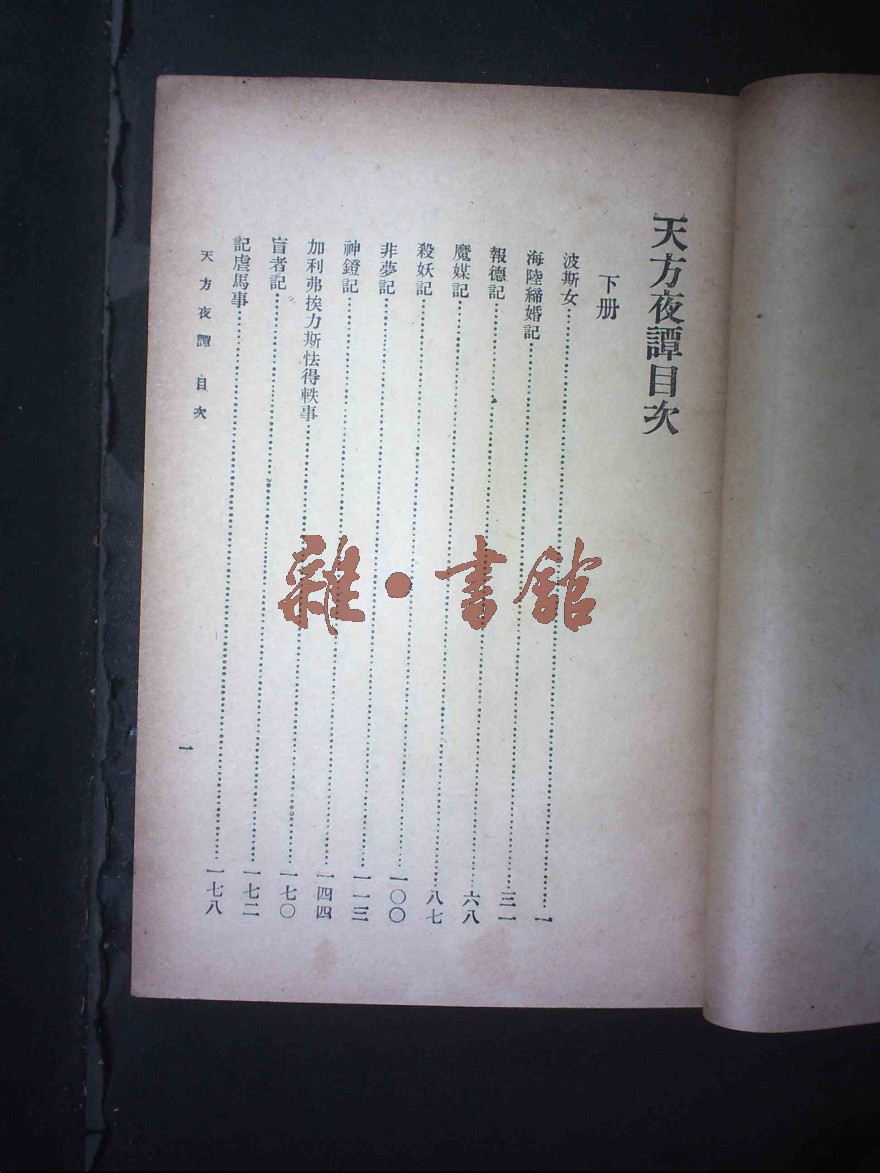 天方夜譚目次
下册
波斯女……一
海陸締婚記……三一
報德記……六八
魔媒記……八七
殺妖記……一〇〇
非夢記……一一三
神鐙記……一四四
加利弗挨力斯怯得軼事……一七〇
盲者記……一七二
記虐馬事……一七八
天方夜譚 目次
一
雜·書館